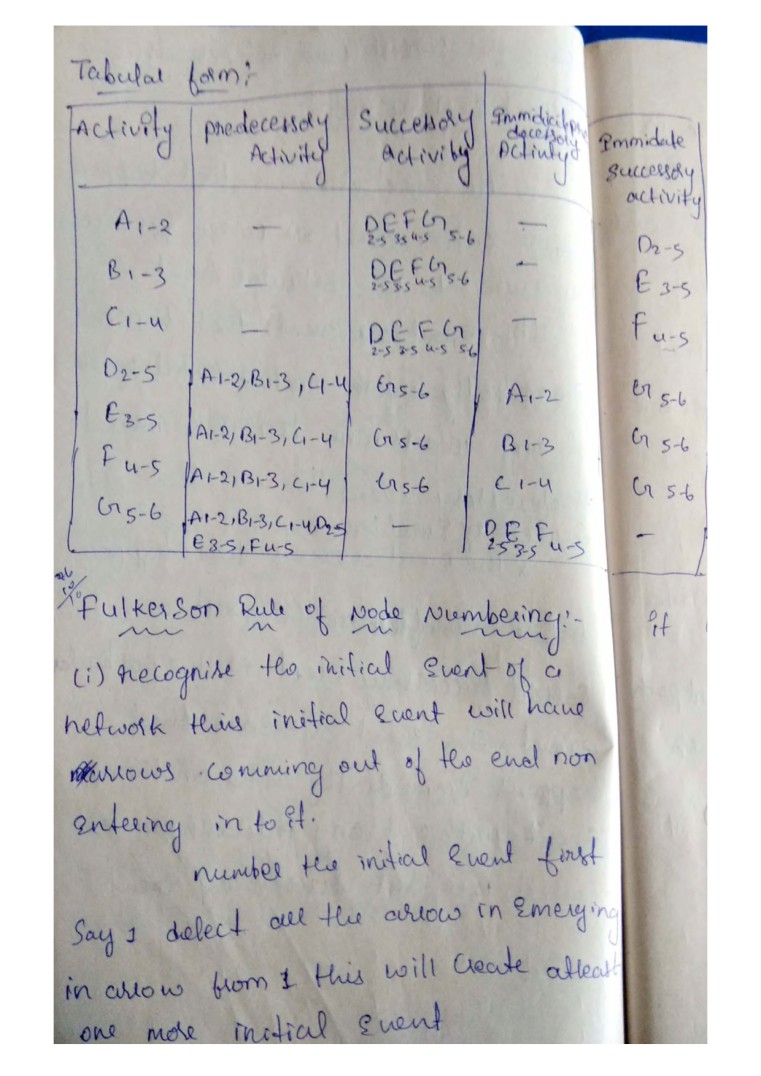 Tabular form:-
Activity | predecessory Activity | Successory activity | Immidiat predecessory Activity | Immidate successory activity
A1-2 | — | D2-5 E3-5 F4-5 G5-6 | — | D2-5
B1-3 | — | D2-5 E3-5 F4-5 G5-6 | — | E3-5
C1-4 | — | D2-5 E3-5 F4-5 G5-6 | — | F4-5
D2-5 | A1-2, B1-3, C1-4 | G5-6 | A1-2 | G5-6
E3-5 | A1-2, B1-3, C1-4 | G5-6 | B1-3 | G5-6
F4-5 | A1-2, B1-3, C1-4 | G5-6 | C1-4 | G5-6
G5-6 | A1-2, B1-3, C1-4, D2-5 E3-5, F4-5 | — | D2-5 E3-5 F4-5 | -
Fulkerson Rule of Node Numbering:-
if
(i) recognise the initial Event of a
network thius initial event will have
arrows comming out of the end non
entering in to it.
number the initial Event first
Say 1 delect all the arrow in Emerging
in arrow from 1 this will Create atleast
one more initial Event